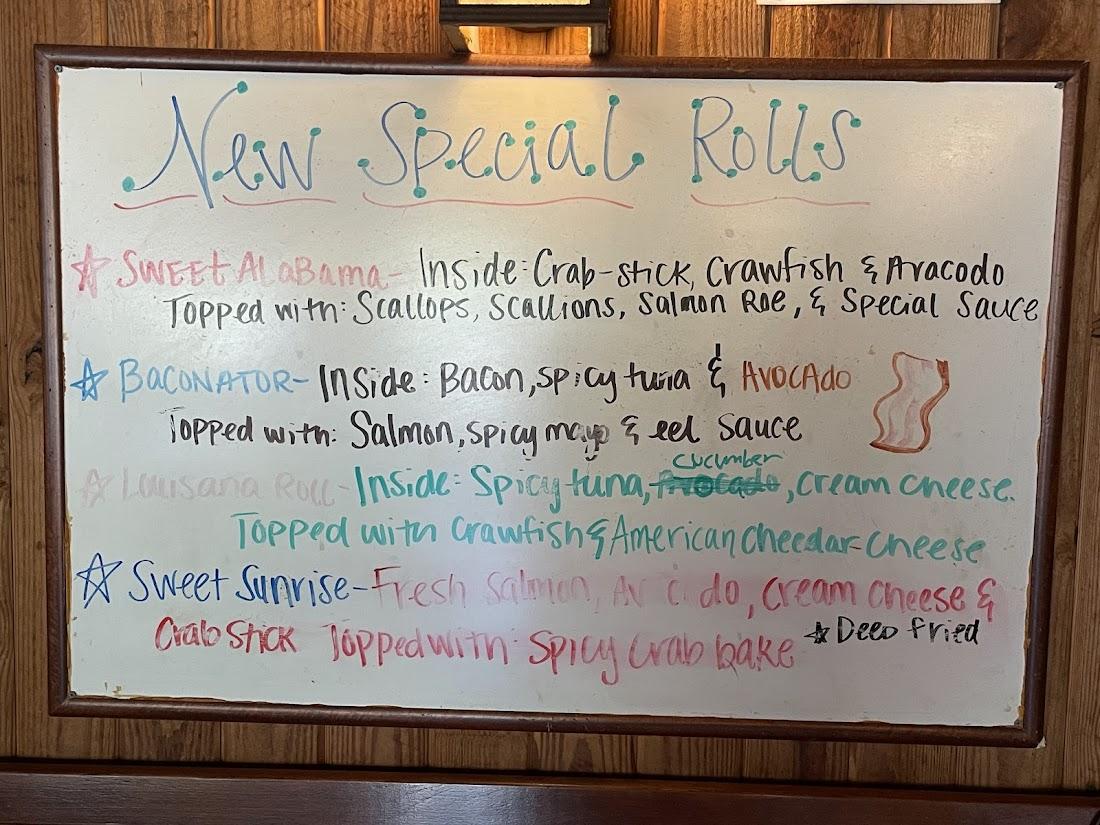 New Special Rolls
Sweet Alabama- Inside: Crab-stick, Crawfish & Avacodo
Topped with: Scallops, Scallions, Salmon Roe, & Special Sauce
Baconator- Inside: Bacon, spicy tuna & Avocado
Topped with: Salmon, spicy mayo & eel sauce
cucumber
Louisana Roll- Inside: Spicy tuna, Avocado, cream cheese.
Topped with Crawfish & American cheedar cheese
Sweet Sunrise- Fresh Salmon, Avocado, cream cheese &
Crab Stick Topped with: Spicy Crab bake ☆Deep fried